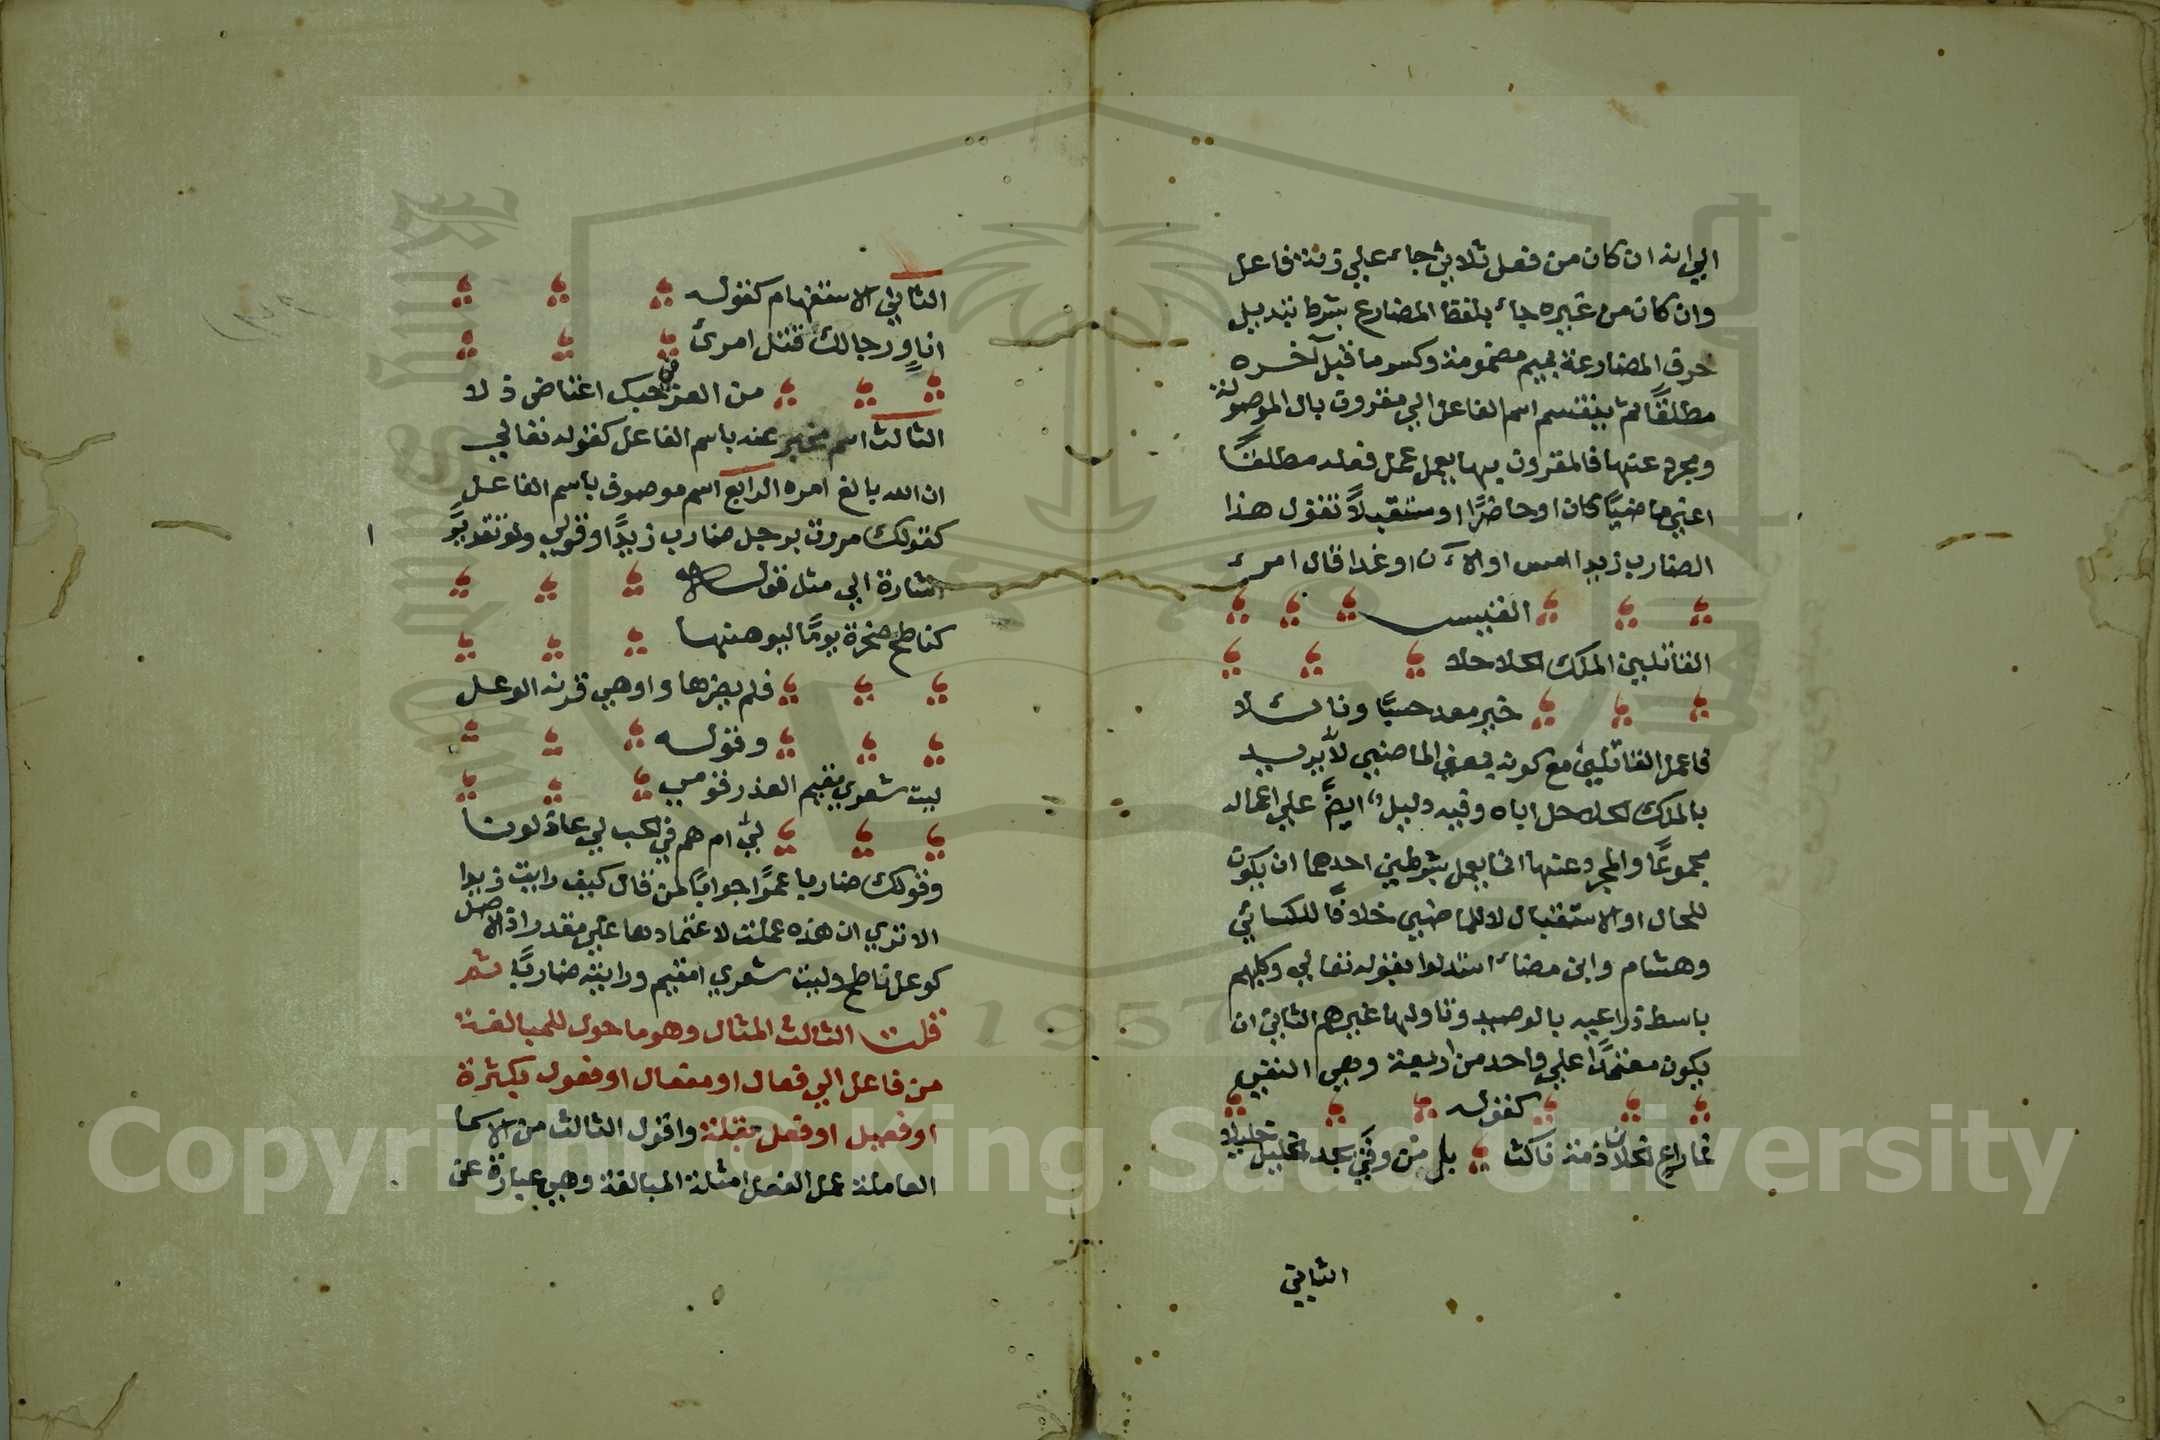 الي انه ان كان من فعل ثلاثي جاء علي زنة فاعل
وان كان من غيره جاء بلفظ المضارع بشرط تبديل
حرف المضارعة بميم مضمومة وكسر ما قبل آخره
مطلقًا ثم ينقسم اسم الفاعل الي مقرون بال الموصولة
ومجرد عنها فالمقرون بها يعمل عمل فعله مطلقًا
اعني ماضيًا كان او حاضرًا او مستقبلاً تقول هذا
الضارب زيدا امس او الآن او غدا قال امرء
القيس
القاتلين الملك الحلاحلا
خير معد حسبًا ونائلا
فاعمل القاتلين مع كونه بمعني الماضي لأنه يريد
بالملك الحلاحل اباه وفيه دليل ايضًا علي اعماله
مجموعًا والمجرد عنها انما يعمل بشرطين احدهما ان يكون
للحال او الاستقبال لا للماضي خلافًا للكسائي
وهشام وابن مضاء استدلوا بقوله تعالي وكلبهم
باسط ذراعيه بالوصيد وتاولها غيرهم الثاني ان
يكون معتمدًا علي واحد من اربعة وهي النفي
كقوله
ما راع الخلان ذمة ناكث بل من وفي يجد الخليل خليلا
الثاني
الثاني الاستفهام كقوله
اناوٍ رجالك قتل امرئ
من العز في حبك اعتاض ذلا
الثالث اسم مخبر عنه باسم الفاعل كقوله تعالي
ان الله بالغ امره الرابع اسم موصوف باسم الفاعل
كقولك مررت برجل ضارب زيدًا وقولي ولو تقديرًا
اشارة الي مثل قوله
كناطح صخرة يومًا ليوهنها
فلم يضرها واوهي قرنه الوعل
وقوله
ليت شعري مقيم العذر قومي
لي ام هم في الحب لي عاذلونا
وقولك ضاربا عمرًا جوابًا لمن قال كيف رايت زيدا
الا تري ان هذه عملت لاعتمادها علي مقدر اذ الاصل
كوعل ناطح وليت شعري امقيم ورايته ضاربًا ثم
قلت الثالث المثال وهو ما حول للمبالغة
من فاعل الي فعال او مفعال او فعول بكثرة
او فعيل او فعل بقلة واقول الثالث من الاسما
العاملة عمل الفعل امثلة المبالغة وهي عبارة عن
1957
Copyright © King Saud University